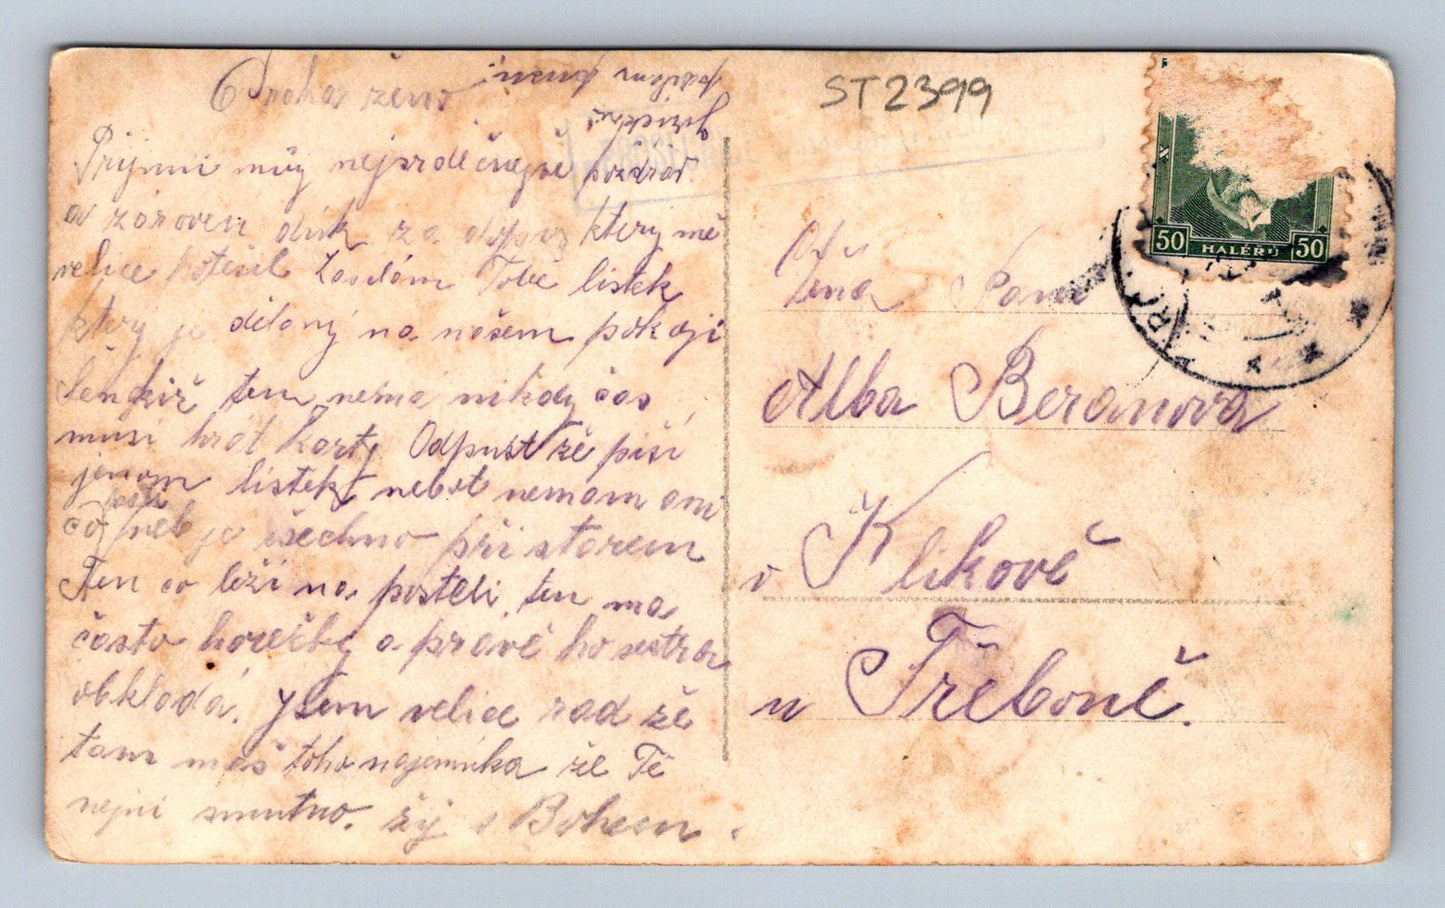 Drahá ženo
Přijmi můj nejsrdečnejšé pozdrav
a zároven dík za dopis který mě
velice potešil Zasilám Tobě lístek
který je dělaný na našem pokoji
ten nemá nikdy čas
musi hrát karty Odpust že piší
jenom lístek nebot nemam ani
co psáti neb je všechno při starem
Ten co leži na posteli, ten ma
často horečky a právě ho sestra
obkladá. Jsem velice rad že
tam máš toho najemnika že Tě
nejni smutno. žij s Bohem.
ST2399
50 HALÉŘŮ 50
Paní
Alba Beranova
v Klikově
u Třeboně.